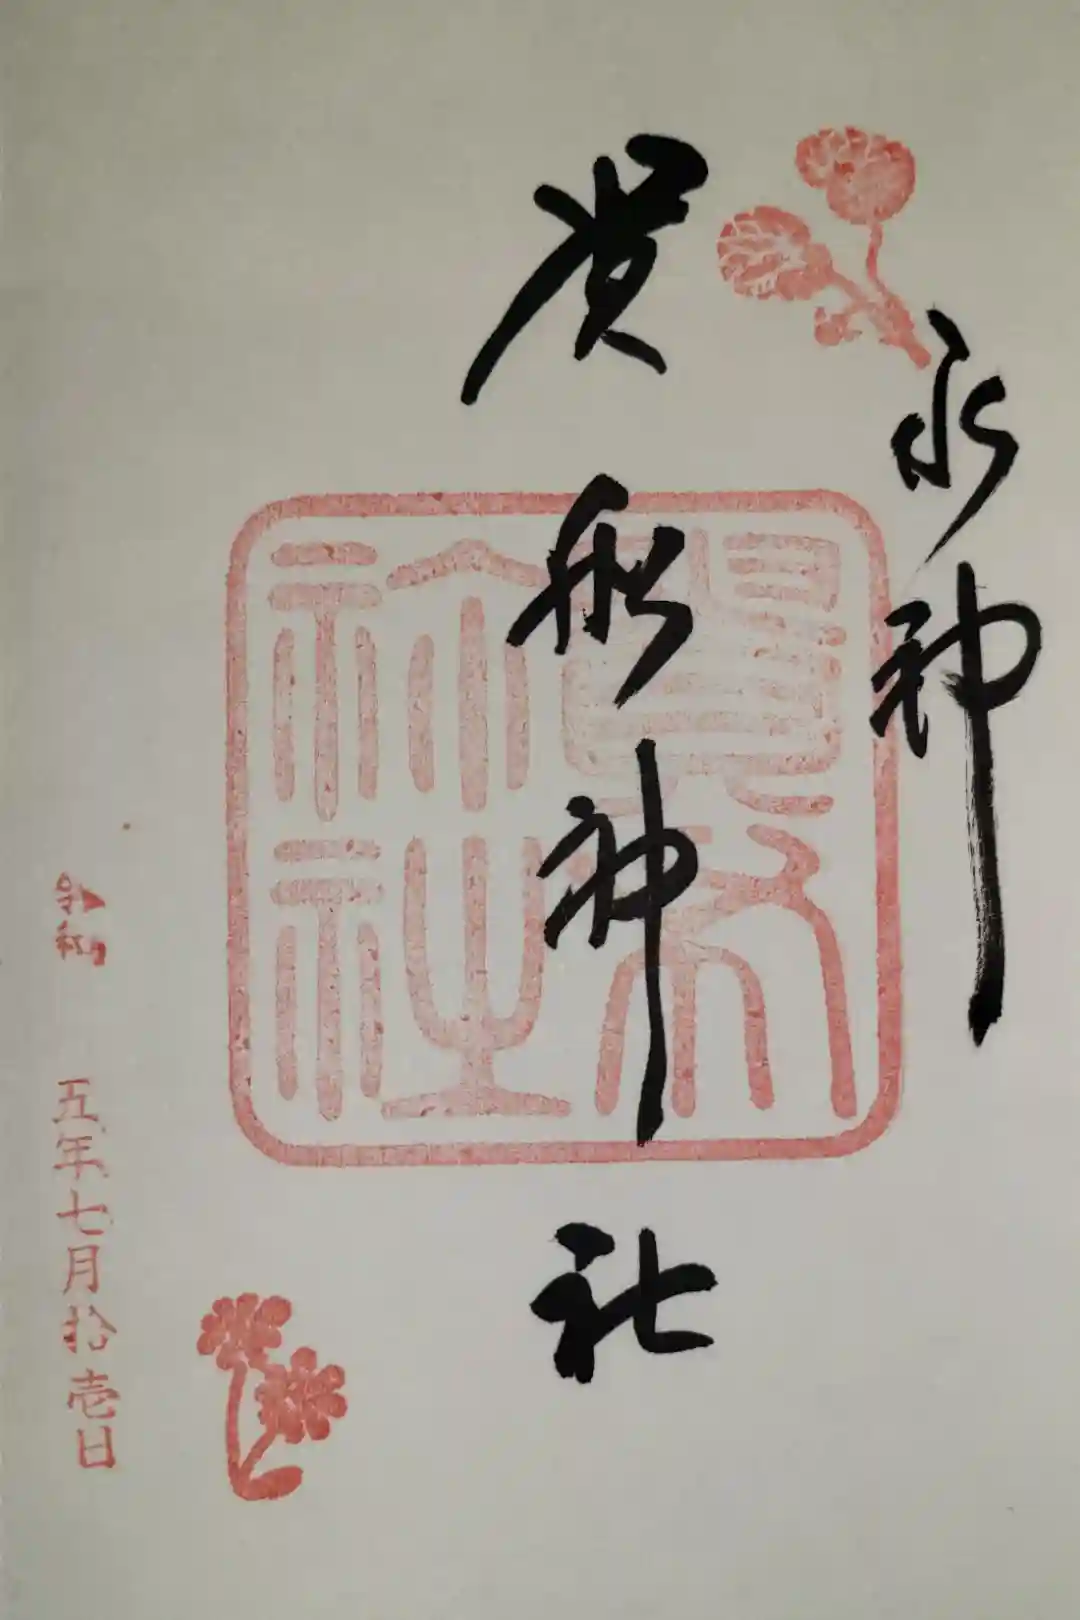 水神
貴船神社
貴布
祢社
令和 五年七月拾壱日